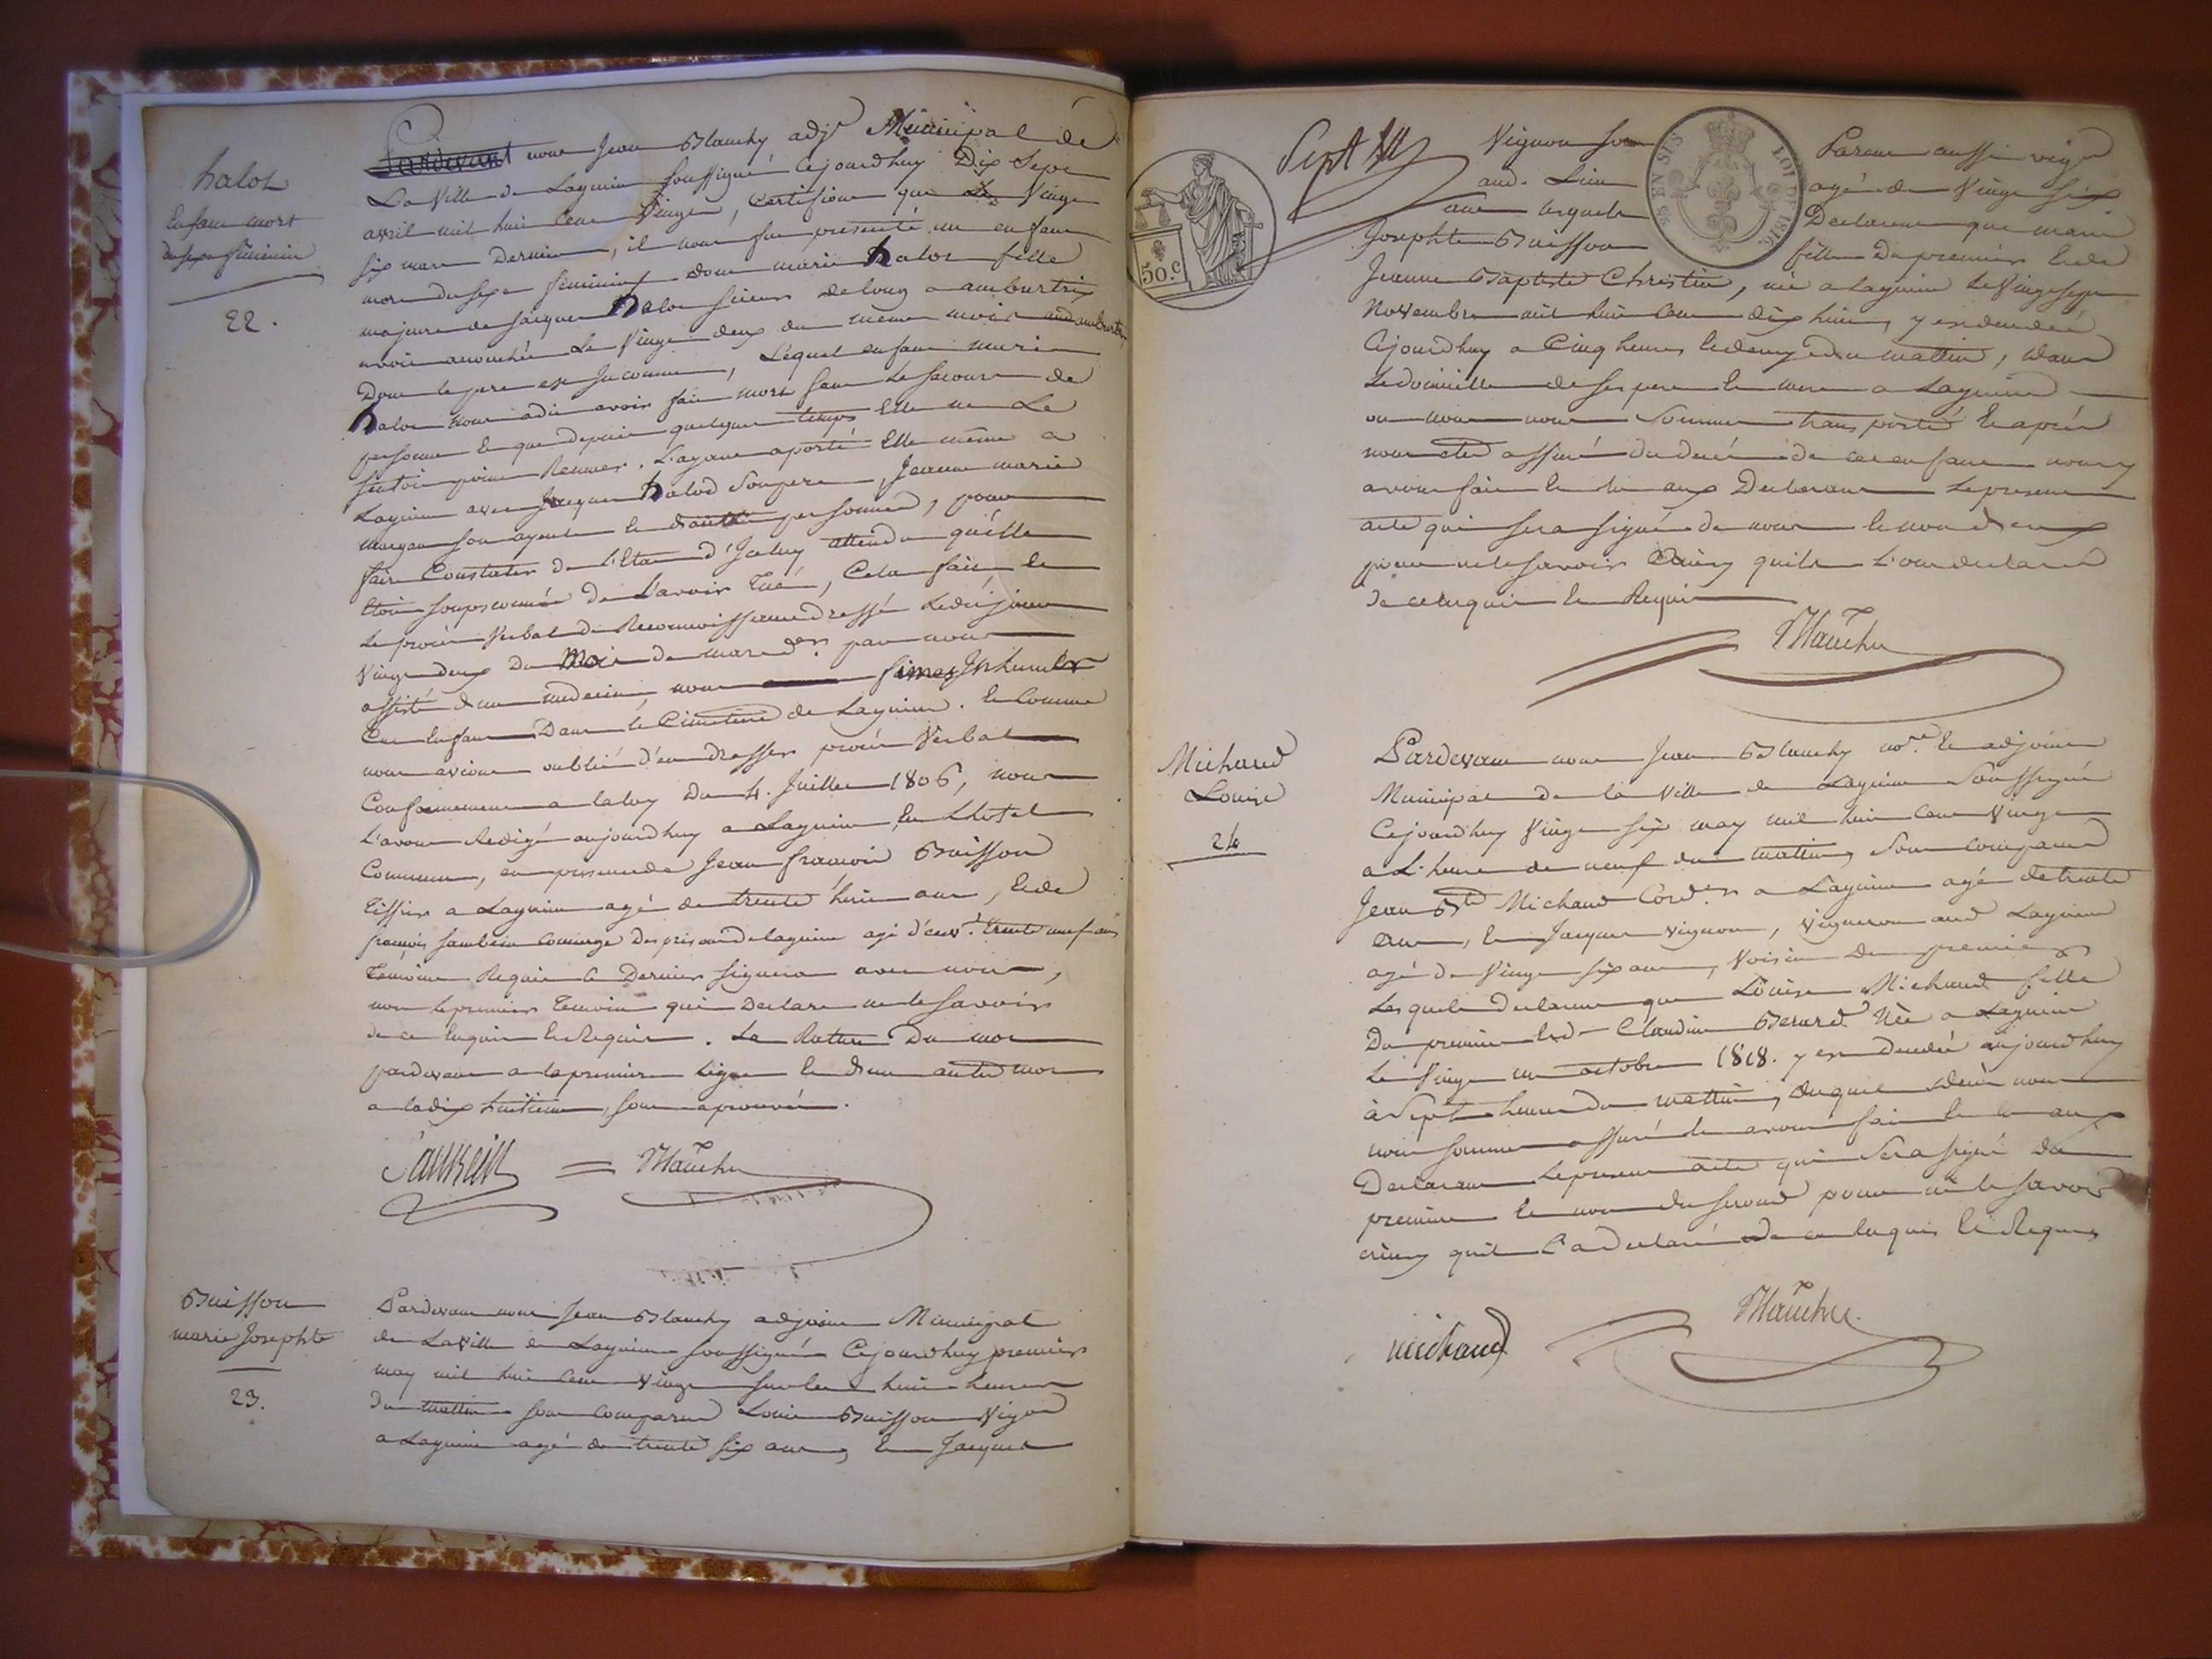 halot
Enfant mort
du sexe féminin
22.
Pardevant nous Jean Blanchy adjt Municipal de
La Ville de Lagnieu soussigné Cejourdhuy Dix Sept
avril mil huit Cent Vingt, Certifions que Le Vingt
six mars Dernier, il nous fut presenté un enfant
mort du sexe féminin dont marie halot fille
majeure de Jacques halot scieur de long a ambutrix
avoit accouchée Le Vingt deux du même mois
Dont le pere est Inconnu, Lequel enfant marie
halot nous a dit avoir fait mort sans Le secours de
personne Et que depuis quelque temps Elle ne Le
sentoit point Remuer. L'ayant aporté Elle même a
Lagnieu avec Jacques halot Son pere, Jeanne marie
son ayeule et d'autres personnes, pour
faire Constater de l'Etat d'Iceluy attendu qu'elle
Etoit soupsconnée de L'avoir Tué, Cela fait et
Le procès Verbal de Reconnoissance dressé Ledit jour
Vingt deux Du Mois de mars der par nous
assisté d'un medecin, nous fimes Inhumer
Cet Enfant Dans le Cimetière de Lagnieu. Et Comme
nous avions oublié d'en dresser procès Verbal
Conformement a la loy Du 4. Juillet 1806, nous
L'avons Redigé aujourdhuy a Lagnieu En L'hotel
Commun, en presence de Jean françois Buisson
Tissier a Lagnieu agé de trente huit ans, Et de
françois concierge Des prisons de lagnieu agé d'env. trente neuf ans
Temoins Requis Ce Dernier signera avec nous,
non Le premier Temoin qui Declare ne le savoir
de ce Enquis Et Requis. La Rature Du mot
pardevant a la premiere Ligne Et d'un autre mot
a la dix huitieme, sont aprouvés.
Blanchy
Buisson
marie Josephte
23.
Pardevant nous Jean Blanchy adjoint Municipal
de La Ville de Lagnieu soussigné Cejourdhuy premier
may mil huit Cent Vingt sur les huit heures
du mattin sont Comparus Louis Buisson Vigon
a Lagnieu agé de trente six ans, Et Jacques
Sept
50.c
EN SUS
LOI DE 1816.
Vignon son Parent aussi vigon
aud. Lieu agé de Vingt six
ans lesquels Declarent que marie
Josephte Buisson fille Du premier Et de
Jeanne Baptiste Christin, née a Lagnieu Le Vingt sept
Novembre mil huit Cent dix huit, y est decedée
Cejourdhuy a Cinq heures Et demy du mattin, dans
Le domicille de ses pere Et mere a Lagnieu
ou nous nous sommes transporté Et après
nous etre assuré du decès de cet enfant nous y
avons fait Et lu aux Declarants Le present
acte qui sera signé de nous Et non d'eux
pour ne le savoir Ecrire qu'ils L'ont declaré
de ce Enquis Et Requis
Blanchy
Michaud
Louise
24
Pardevant nous Jean Blanchy nore Et adjoint
Municipal De La Ville de Lagnieu Soussigné
Cejourdhuy Vingt six may mil huit Cent Vingt
a L'heure de neuf du mattin, Sont Comparus
Jean Bte Michaud Cord.er a Lagnieu agé de trente
ans, Et Jacques vignon, vigneron aud Lagnieu
agé de Vingt six ans, Voisin Du premier
Lesquels Declarent que Louise Michaud fille
Du premier Et d Claudine Berard Née a Lagnieu
Le Vingt un octobre 1818. y est Decedée aujourdhuy
à Sept heures du mattin, duquel decès nous
nous sommes assuré Et avons fait Et lu aux
Declarants Le present acte qui Sera signé du
premier Et non du second pour ne le savoir
ecrire qu'il L'a declaré de ce Enquis Et Requis
michaud
Blanchy